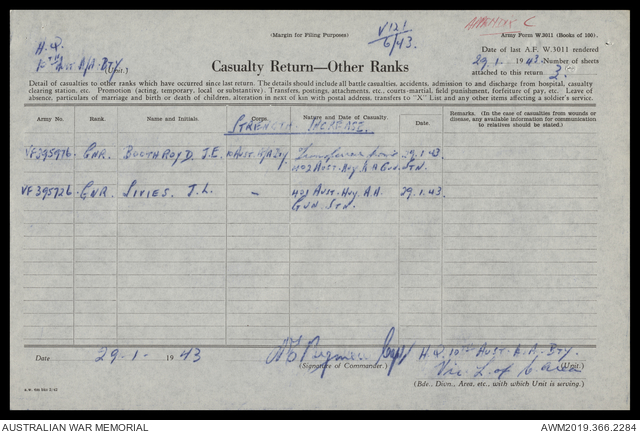 (Margin for Filing Purposes)
V121
6/43.
ANNEXURE C
Army Form W.3011 (Books of 100).
H.Q.
10TH AUST A/A BTY (Unit.)
Date of last A.F. W.3011 rendered
29.1. 1943. Number of sheets
attached to this return 2.
Casualty Return—Other Ranks
Detail of casualties to other ranks which have occurred since last return. The details should include all battle casualties, accidents, admission to and discharge from hospital, casualty
clearing station, etc. Promotion (acting, temporary, local or substantive). Transfers, postings, attachments, etc., courts-martial, field punishment, forfeiture of pay, etc. Leave of
absence, particulars of marriage and birth or death of children, alteration in next of kin with postal address, transfers to "X" List and any other items affecting a soldier's service.
Army No. Rank. Name and Initials. Corps. Nature and Date of Casualty. Date. Remarks. (In the case of casualties from wounds or
disease, any available information for communication
to relatives should be stated.)
STRENGTH INCREASE.
VF395976. GNR. BOOTHROYD. J.E. AUST. A/A Bty Transferred from 29.1.43.
402 AUST. HVY A A GUN. STN.
VF395726. GNR. J.L. - 401 AUST. HVY. A.A. 29.1.43.
GUN STN.
Date 29.1. 1943
Capt H.Q. 10TH AUST. A.A. BTY.
(Signature of Commander.) (Unit.)
Vic L of C Area
(Bde., Divn., Area, etc., with which Unit is serving.)
AUSTRALIAN WAR MEMORIAL
AWM2019.366.2284